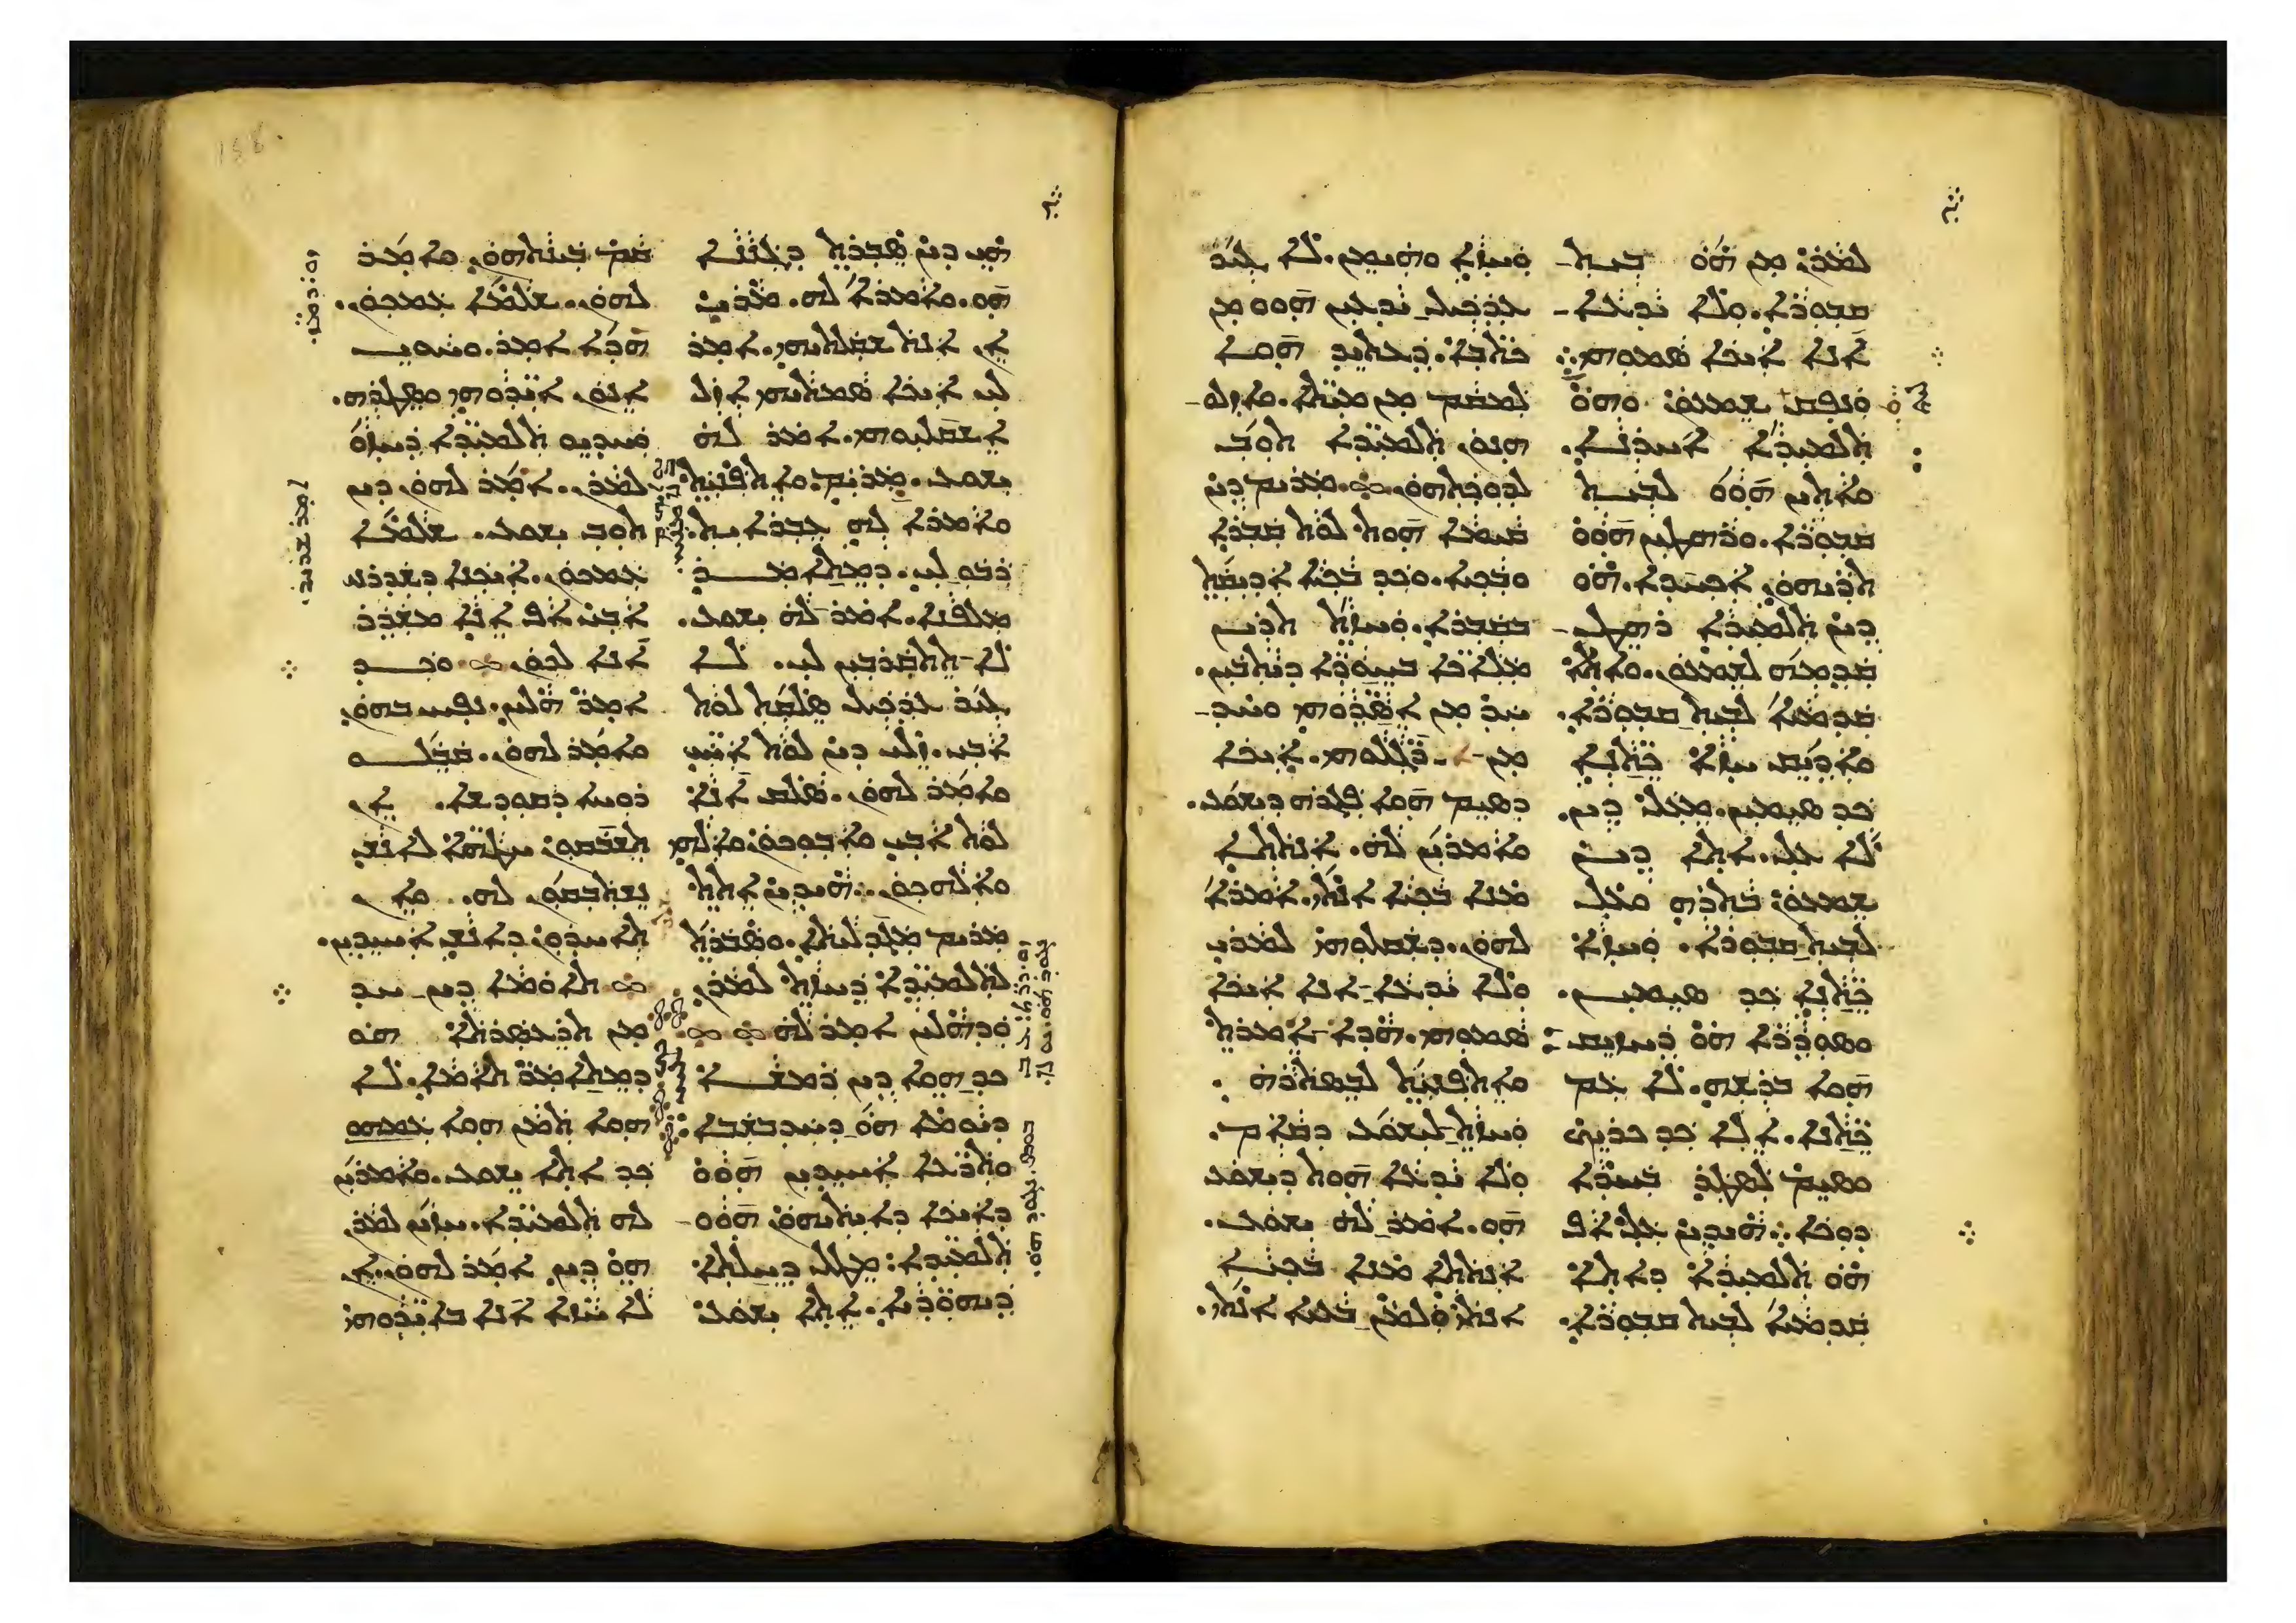 ܠܡܪܢ ܡܢ ܗܘ ܒܝܬ
ܩܒܘܪܐ. ܘܠܐ ܝܕܥܐ
ܐܢܐ ܐܝܟܐ ܣܡܘܗܝ܀
ܘܢܦܩ ܫܡܥܘܢ ܘܗܘ
ܬܠܡܝܕܐ ܐܚܪܢܐ.
ܘܐܬܝܢ ܗܘܘ ܠܒܝܬ
ܩܒܘܪܐ. ܘܪܗܛܝܢ ܗܘܘ
ܬܪܝܗܘܢ ܐܟܚܕܐ. ܗܘ
ܕܝܢ ܬܠܡܝܕܐ ܪܗܛ
ܩܕܡܘܗܝ ܠܫܡܥܘܢ. ܘܐܬܐ
ܩܕܡܝܐ ܠܒܝܬ ܩܒܘܪܐ.
ܘܐܕܝܩ ܚܙܐ ܟܬܢܐ
ܟܕ ܣܝܡܝܢ. ܡܥܠ ܕܝܢ.
ܠܐ ܥܠ. ܐܬܐ ܕܝܢ
ܫܡܥܘܢ ܒܬܪܗ ܘܥܠ
ܠܒܝܬ ܩܒܘܪܐ. ܘܚܙܐ
ܟܬܢܐ ܟܕ ܣܝܡܝܢ.
ܘܣܘܕܪܐ ܗܘ ܕܚܙܝܩ
ܗܘܐ ܒܪܫܗ. ܠܐ ܥܡ
ܟܬܢܐ. ܐܠܐ ܟܕ ܟܪܝܟ
ܘܣܝܡ ܠܣܛܪ ܒܚܕܐ
ܕܘܟܐ܀ ܗܝܕܝܢ ܥܠ ܐܦ
ܗܘ ܬܠܡܝܕܐ ܕܐܬܐ
ܩܕܡܝܐ ܠܒܝܬ ܩܒܘܪܐ.
ܘܚܙܐ ܘܗܝܡܢ. ܠܐ ܓܝܪ
ܥܕܟܝܠ ܝܕܥܝܢ ܗܘܘ ܡܢ
ܟܬܒܐ. ܕܥܬܝܕ ܗܘܐ
ܠܡܩܡ ܡܢ ܡܝܬܐ. ܘܐܙܠܘ
ܗܢܘܢ ܬܠܡܝܕܐ ܬܘܒ
ܠܕܘܟܬܗܘܢ. ܡܪܝܡ ܕܝܢ
ܩܝܡܐ ܗܘܬ ܠܘܬ ܩܒܪܐ
ܘܒܟܝܐ. ܘܟܕ ܒܟܝܐ ܐܕܝܩܬ
ܒܩܒܪܐ. ܘܚܙܬ ܬܪܝܢ
ܡܠܐܟܐ ܒܚܘܪܐ ܕܝܬܒܝܢ.
ܚܕ ܡܢ ܐܣܕܘܗܝ ܘܚܕ
ܡܢ ܪܓܠܘܗܝ. ܐܝܟܐ
ܕܣܝܡ ܗܘܐ ܦܓܪܗ ܕܝܫܘܥ.
ܘܐܡܪܝܢ ܠܗ. ܐܢܬܬܐ
ܡܢܐ ܒܟܝܐ ܐܢܬܝ. ܐܡܪܐ
ܠܗܘܢ. ܕܫܩܠܘܗܝ ܠܡܪܝ
ܘܠܐ ܝܕܥܐ ܐܢܐ ܐܝܟܐ
ܣܡܘܗܝ. ܗܕܐ ܐܡܪܬ
ܘܐܬܦܢܝܬ ܠܒܣܬܪܗ.
ܘܚܙܬ ܠܝܫܘܥ ܕܩܐܡ.
ܘܠܐ ܝܕܥܐ ܗܘܬ ܕܝܫܘܥ
ܗܘ. ܐܡܪ ܠܗ ܝܫܘܥ.
ܐܢܬܬܐ ܡܢܐ ܒܟܝܐ
ܐܢܬܝ ܘܠܡܢ ܒܥܝܐ ܐܢܬܝ.
ܗܝ ܕܝܢ ܣܒܪܬ ܕܓܢܢܐ
ܗܘ. ܘܐܡܪܐ ܠܗ. ܡܪܝ
ܐܢ ܐܢܬ ܫܩܠܬܝܗܝ. ܐܡܪ
ܠܝ ܐܝܟܐ ܣܡܬܝܗܝ ܐܙܠ
ܐܫܩܠܝܘܗܝ. ܐܡܪ ܠܗ
ܝܫܘܥ. ܡܪܝܡ. ܘܐܬܦܢܝܬ
ܘܐܡܪܐ ܠܗ ܥܒܪܐܝܬ.
ܪܒܘܠܝ. ܕܡܬܐܡܪ
ܡܠܦܢܐ. ܐܡܪ ܠܗ ܝܫܘܥ.
ܠܐ ܬܬܩܪܒܝܢ ܠܝ. ܠܐ
ܓܝܪ ܥܕܟܝܠ ܣܠܩܬ ܠܘܬ
ܐܒܝ. ܙܠܝ ܕܝܢ ܠܘܬ ܐܚܝ
ܘܐܡܪܝ ܠܗܘܢ. ܣܠܩ ܐܢܐ
ܠܘܬ ܐܒܝ ܘܐܒܘܟܘܢ ܘܐܠܗܝ
ܘܐܠܗܟܘܢ܀ ܗܝܕܝܢ ܐܬܬ
ܡܪܝܡ ܡܓܕܠܝܬܐ. ܘܣܒܪܬ
ܠܬܠܡܝܕܐ ܕܚܙܬ ܠܡܪܢ.
ܘܕܗܠܝܢ ܐܡܪ ܠܗ
ܟܕ ܗܘܐ ܕܝܢ ܪܡܫܐ
ܕܝܘܡܐ ܗܘ ܕܚܕܒܫܒܐ
ܘܬܪܥܐ ܐܚܝܕܝܢ ܗܘܘ
ܕܐܝܟܐ ܕܐܝܬܝܗܘܢ ܗܘܘ
ܬܠܡܝܕܐ. ܡܛܠ ܕܚܠܬܐ
ܕܝܗܘܕܝܐ. ܐܬܐ ܝܫܘܥ
ܩܡ ܒܝܢܬܗܘܢ. ܘܐܡܪ
ܠܗܘܢ. ܫܠܡܐ ܥܡܟܘܢ.
ܗܕܐ ܐܡܪ. ܘܚܘܝ
ܐܢܘܢ ܐܝܕܘܗܝ ܘܣܛܪܗ.
ܘܚܕܝܘ ܬܠܡܝܕܐ ܕܚܙܘ
ܠܡܪܢ. ܐܡܪ ܠܗܘܢ ܕܝܢ
ܬܘܒ ܝܫܘܥ. ܫܠܡܐ
ܥܡܟܘܢ. ܐܝܟܢܐ ܕܫܕܪܢܝ
ܐܒܝ ܐܦ ܐܢܐ ܡܫܕܪ
ܐܢܐ ܠܟܘܢ ܘܟܕ
ܐܡܪ ܗܠܝܢ. ܢܦܚ ܒܗܘܢ
ܘܐܡܪ ܠܗܘܢ. ܩܒܠܘ
ܪܘܚܐ ܕܩܘܕܫܐ. ܐܢ
ܬܫܒܩܘܢ ܚܛܗܐ ܠܐܢܫ
ܢܫܬܒܩܘܢ ܠܗ. ܘܐܢ
ܬܐܚܕܘܢ ܕܐܢܫ ܐܚܝܕܝܢ.
ܬܐܘܡܐ ܕܝܢ ܚܕ
ܡܢ ܬܪܥܣܪܬܐ ܗܘ
ܕܡܬܐܡܪ ܬܐܡܐ. ܠܐ
ܗܘܐ ܬܡܢ ܗܘܐ ܥܡܗܘܢ
ܟܕ ܐܬܐ ܝܫܘܥ. ܘܐܡܪܝܢ
ܠܗ ܬܠܡܝܕܐ. ܚܙܝܢ ܠܡܪܢ
ܗܘ ܕܝܢ ܐܡܪ ܠܗܘܢ. ܐܢ
ܠܐ ܚܙܐ ܐܢܐ ܒܐܝܕܘܗܝ